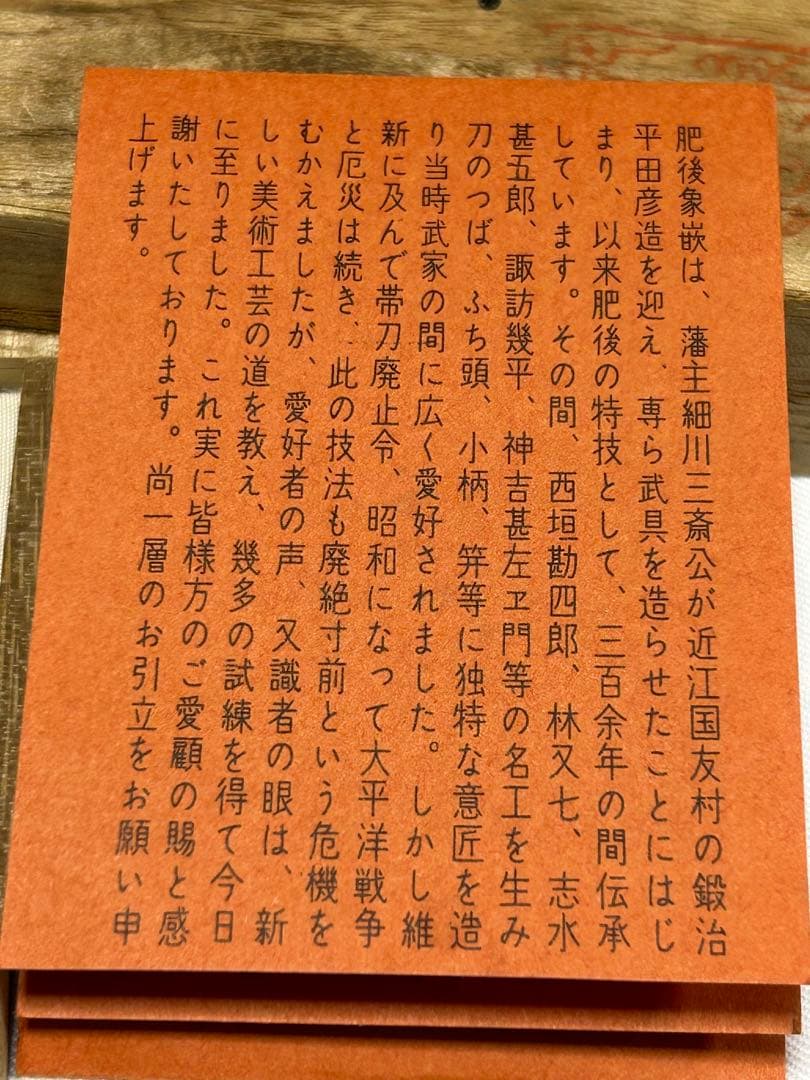 肥後象嵌は、藩主細川三斎公が近江国友村の鍛治
平田彦造を迎え、専ら武具を造らせたことにはじ
まり、以来肥後の特技として、三百余年の間伝承
しています。その間、西垣勘四郎、林又七、志水
甚五郎、諏訪幾平、神吉甚左ヱ門等の名工を生み
刀のつば、ふち頭、小柄、笄等に独特な意匠を造
り当時武家の間に広く愛好されました。しかし維
新に及んで帯刀廃止令、昭和になって大平洋戦争
と厄災は続き、此の技法も廃絶寸前という危機を
むかえましたが、愛好者の声、又識者の眼は、新
しい美術工芸の道を教え、幾多の試練を得て今日
に至りました。これ実に皆様方のご愛顧の賜と感
謝いたしております。尚一層のお引立をお願い申
上げます。